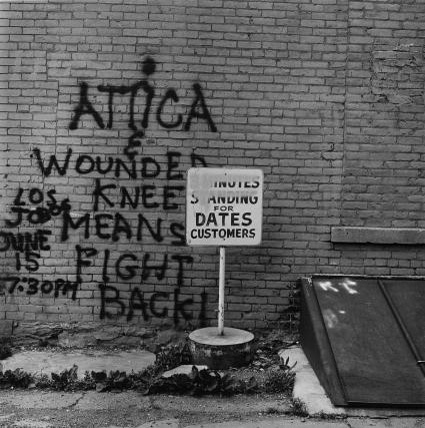 ATTICA
&
WOUNDED
KNEE
MEANS
FIGHT
BACK!
LOSS
JOBS
JUNE
15
7:30PM
MINUTES
STANDING
FOR
DATES
CUSTOMERS